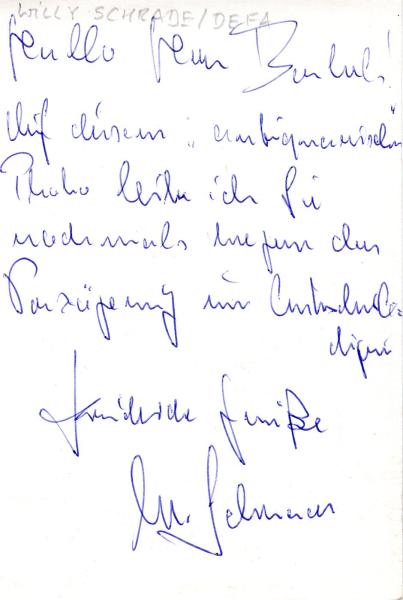 WILLY SCHRADE/DEFA
Hallo Herr
Auf diesem "antiquarischen
Photo bitte ich Sie
nochmals wegen der
Verzögerung um Entschul-
digung
Freundliche Grüße
W. Schrade